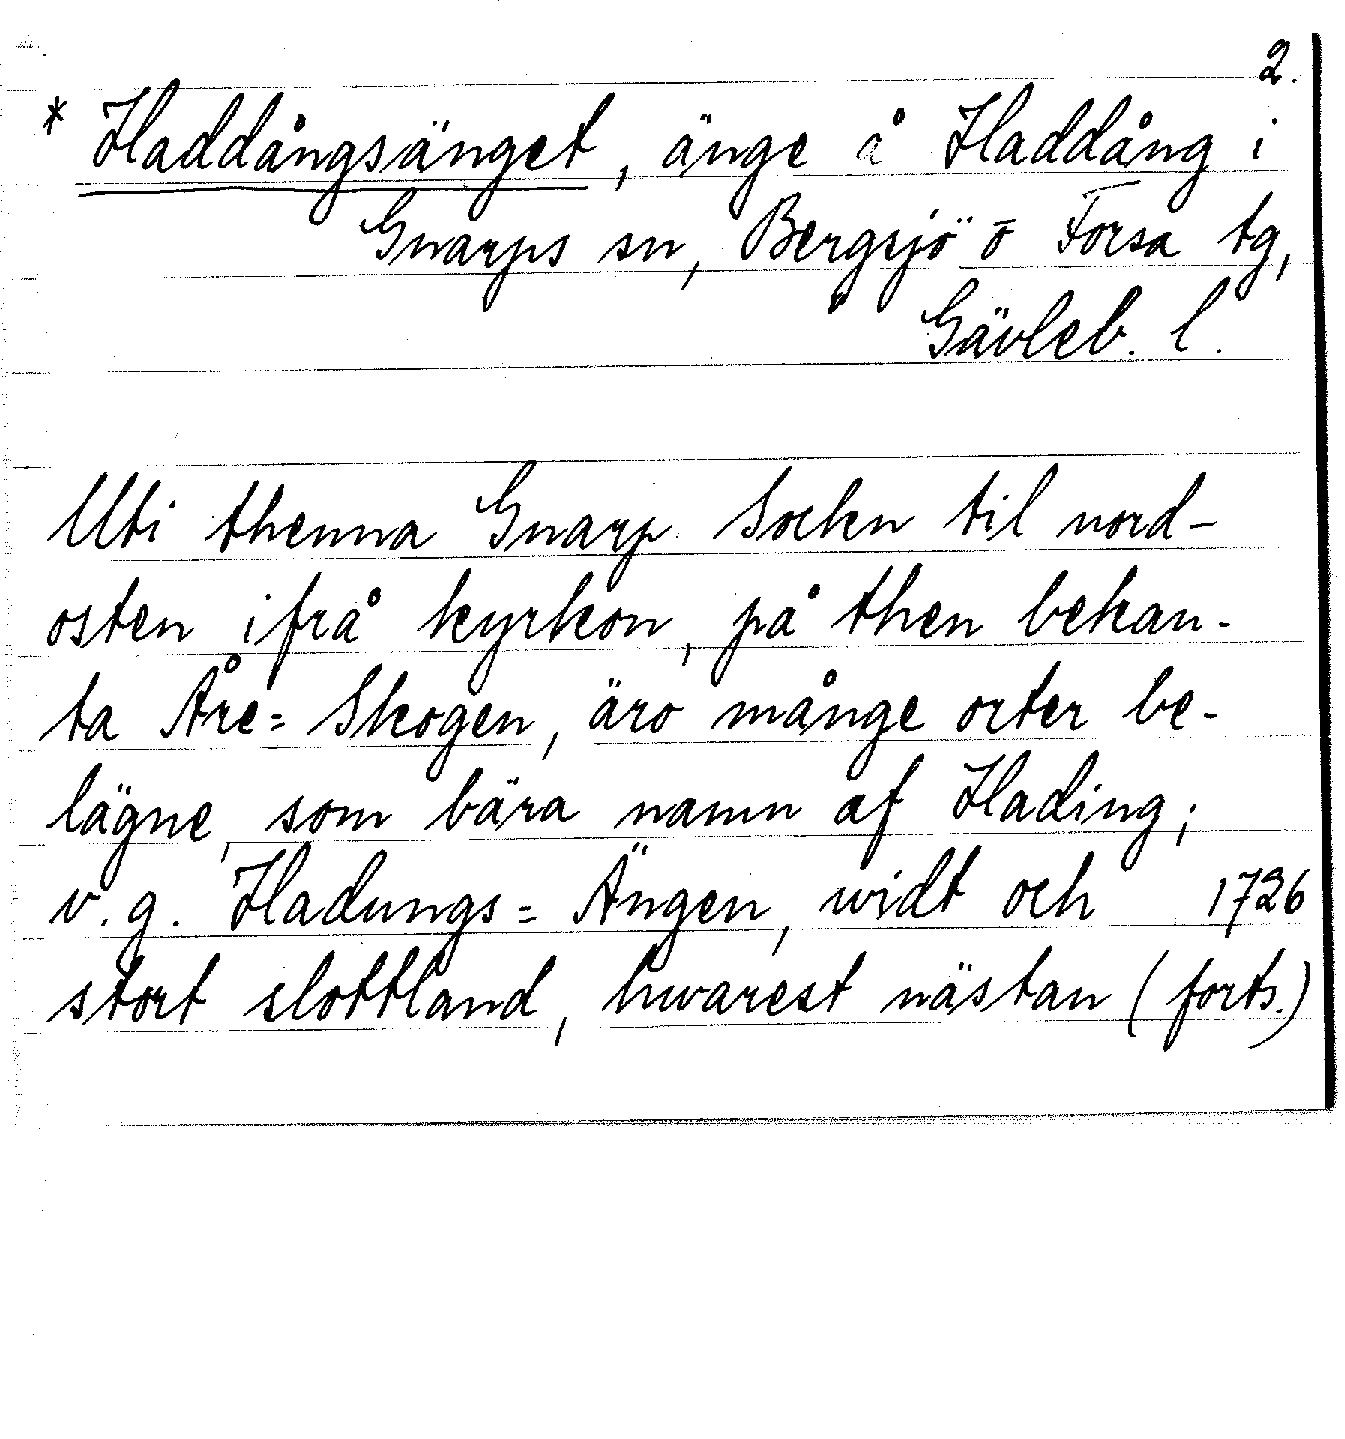 2.
* Haddångsänget, änge å Haddång i
Gnarps sn, Bergsjö o Forsa tg,
Gävleb. l.
Uti thenna Gnarp Sockn til nord-
osten ifrå kyrkon, på then bekan-
ta Åre= Skogen, äro många orter be-
lägne, som bära namn af Hading;
v.g. Hadungs= Ängen, widt och 1726
stort slottland, hwarest nästan (forts.)